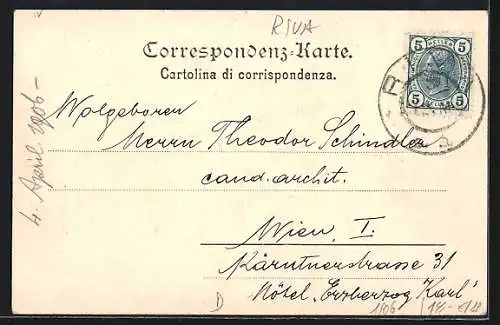 RIVA
Correspondenz-Karte.
Cartolina di corrispondenza.
5 HELLER 5
5 5
R
4. April. 1906 –
Wolgeboren
Herrn Theodor Schindler
cand. archit.
Wien, I.
Kärntnerstrasse 31
Hôtel „Erzherzog Karl"
D
1906